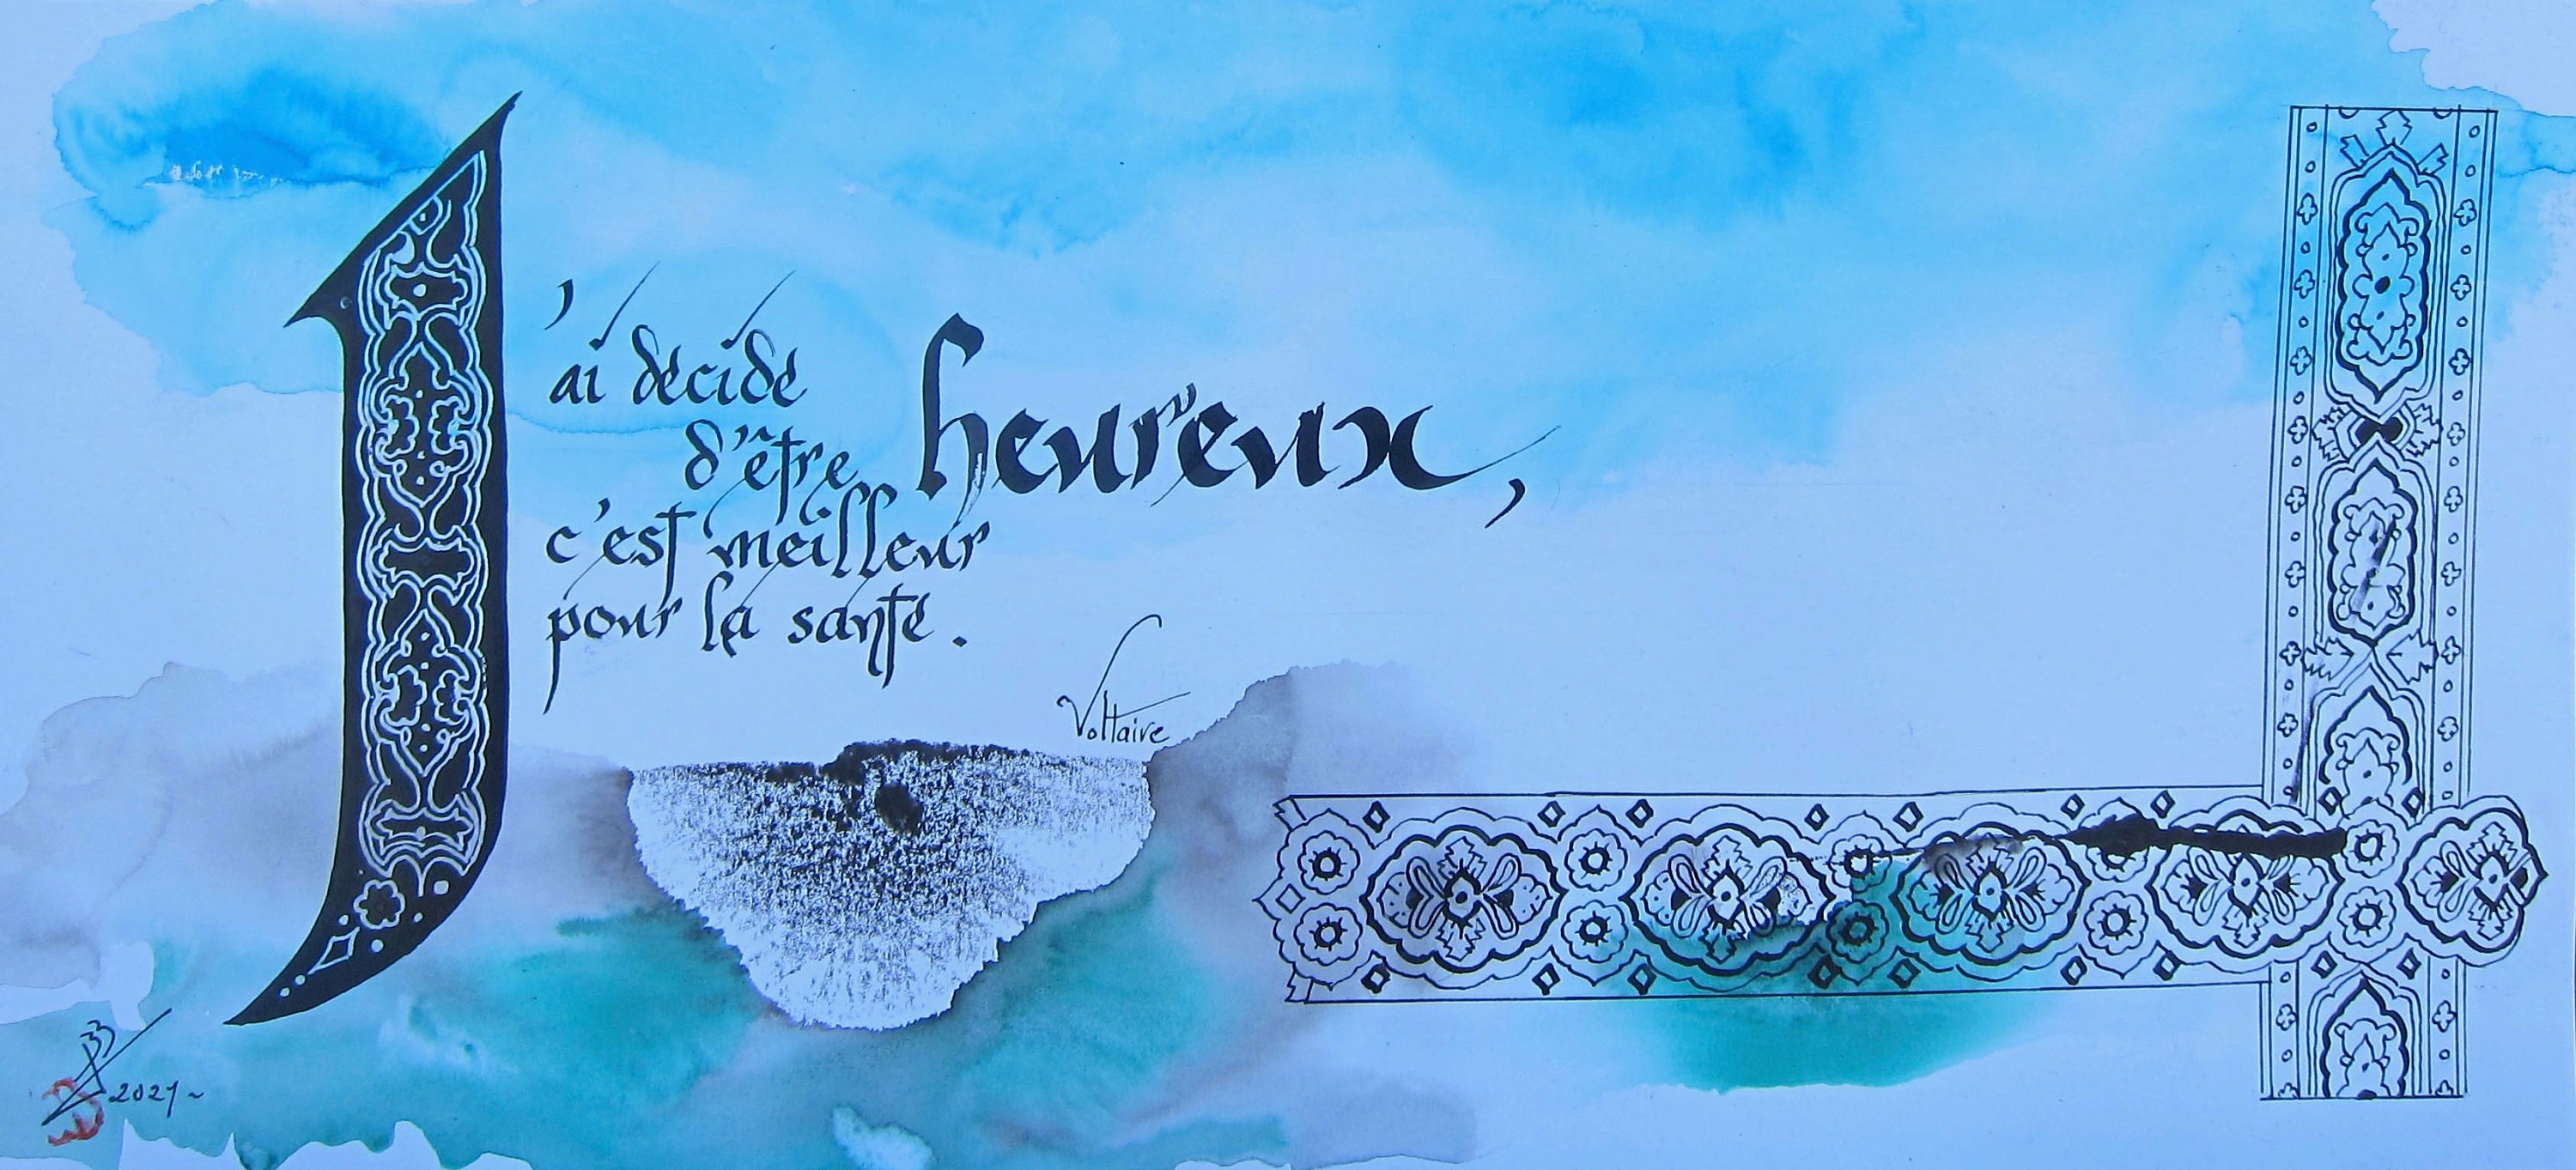 J'ai décidé
d'être heureux,
c'est meilleur
pour la santé.
Voltaire
2021~